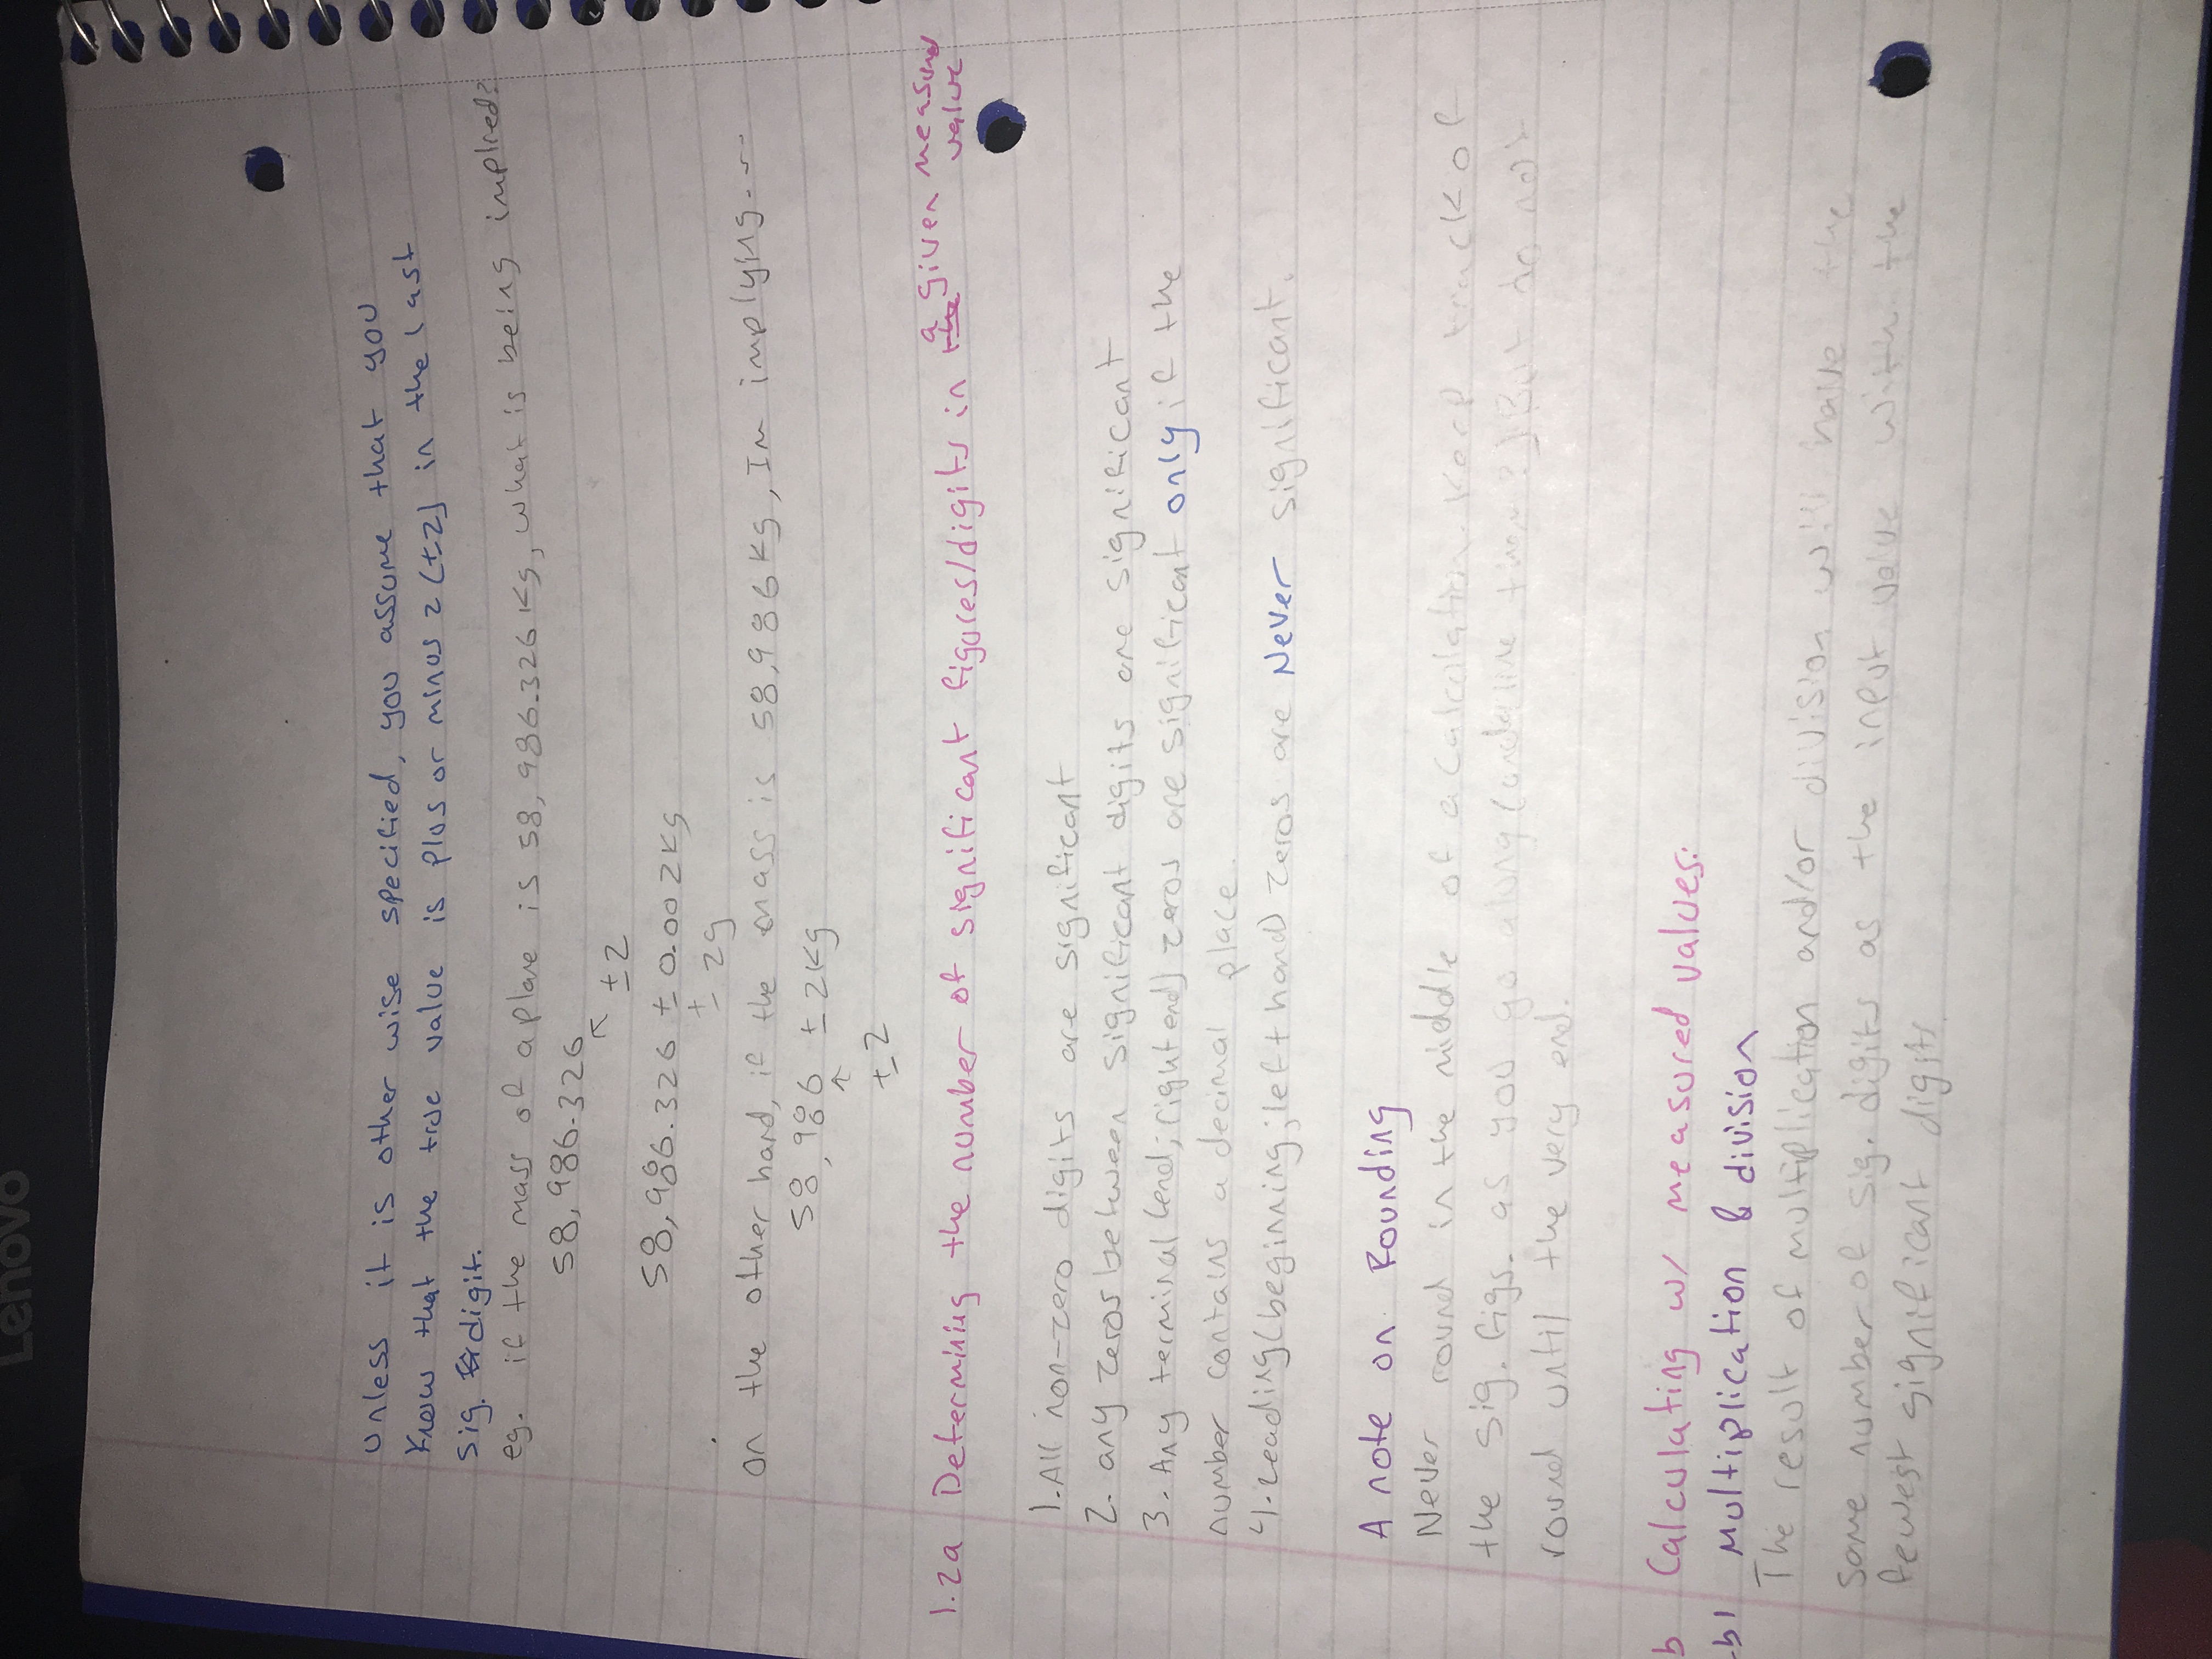 Lenovo
unless it is other wise specified, you assume that you
know that the true value is plus or minus 2 (±2) in the last
sig. digit.
eg. if the mass of a plane is 58,986.326 Kg, what is being implied?
58,986.326
↖
±2
58,986.326 ± 0.002Kg
± 2g
on the other hand, if the mass is 58,986Kg, Im implying...
58,986 ±2Kg
↑
±2
1.2a Determining the number of significant figures/digits in the a given measured value
1. All non-zero digits are significant
2. any zeros between significant digits are significant
3. Any terminal (end; right end) zeros are significant only if the
number contains a decimal place.
4. Leading (beginning; left hand) zeros are Never significant.
A note on Rounding
Never round in the middle of a calculation. Keep track of
the sig. figs. as you go along (underline them?) But do not
round until the very end.
b Calculating w/ measured values:
b1 Multiplication & division
The result of multiplication and/or division will have the
same number of sig. digits as the input value with the
fewest significant digits.